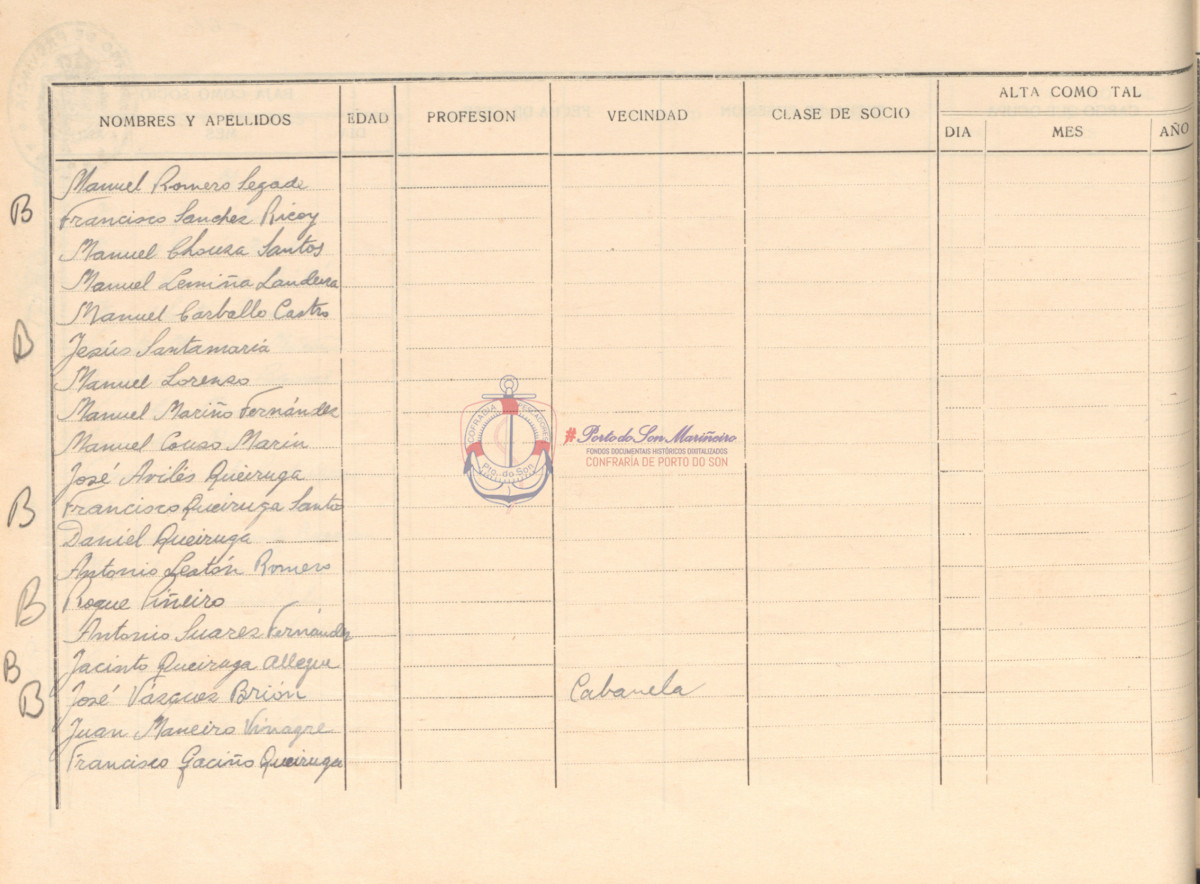 ALTA COMO TAL
NOMBRES Y APELLIDOS EDAD PROFESION VECINDAD CLASE DE SOCIO DIA MES AÑO
Manuel Romero Segade
B Francisco Sanchez Ricoy
Manuel Chouza Santos
Manuel Lemiña Landeira
Manuel Carballo Castro
B Jesús Santamaría
Manuel Lorenzo
Manuel Mariño Fernández
Manuel Couso Marín
José Avilés Queiruga
B Francisco Queiruga Santos
Daniel Queiruga
Antonio Lestón Romero
B Roque Piñeiro
Antonio Suarez Fernández
B Jacinto Queiruga Allegue
B José Vázquez Brión Cabanela
Juan Maneiro Vinagre
Francisco Gaciño Queiruga
COFRADIA PESCADORES
Pto. do Son
#Porto do Son Mariñeiro
FONDOS DOCUMENTAIS HISTÓRICOS DIXITALIZADOS
CONFRARÍA DE PORTO DO SON